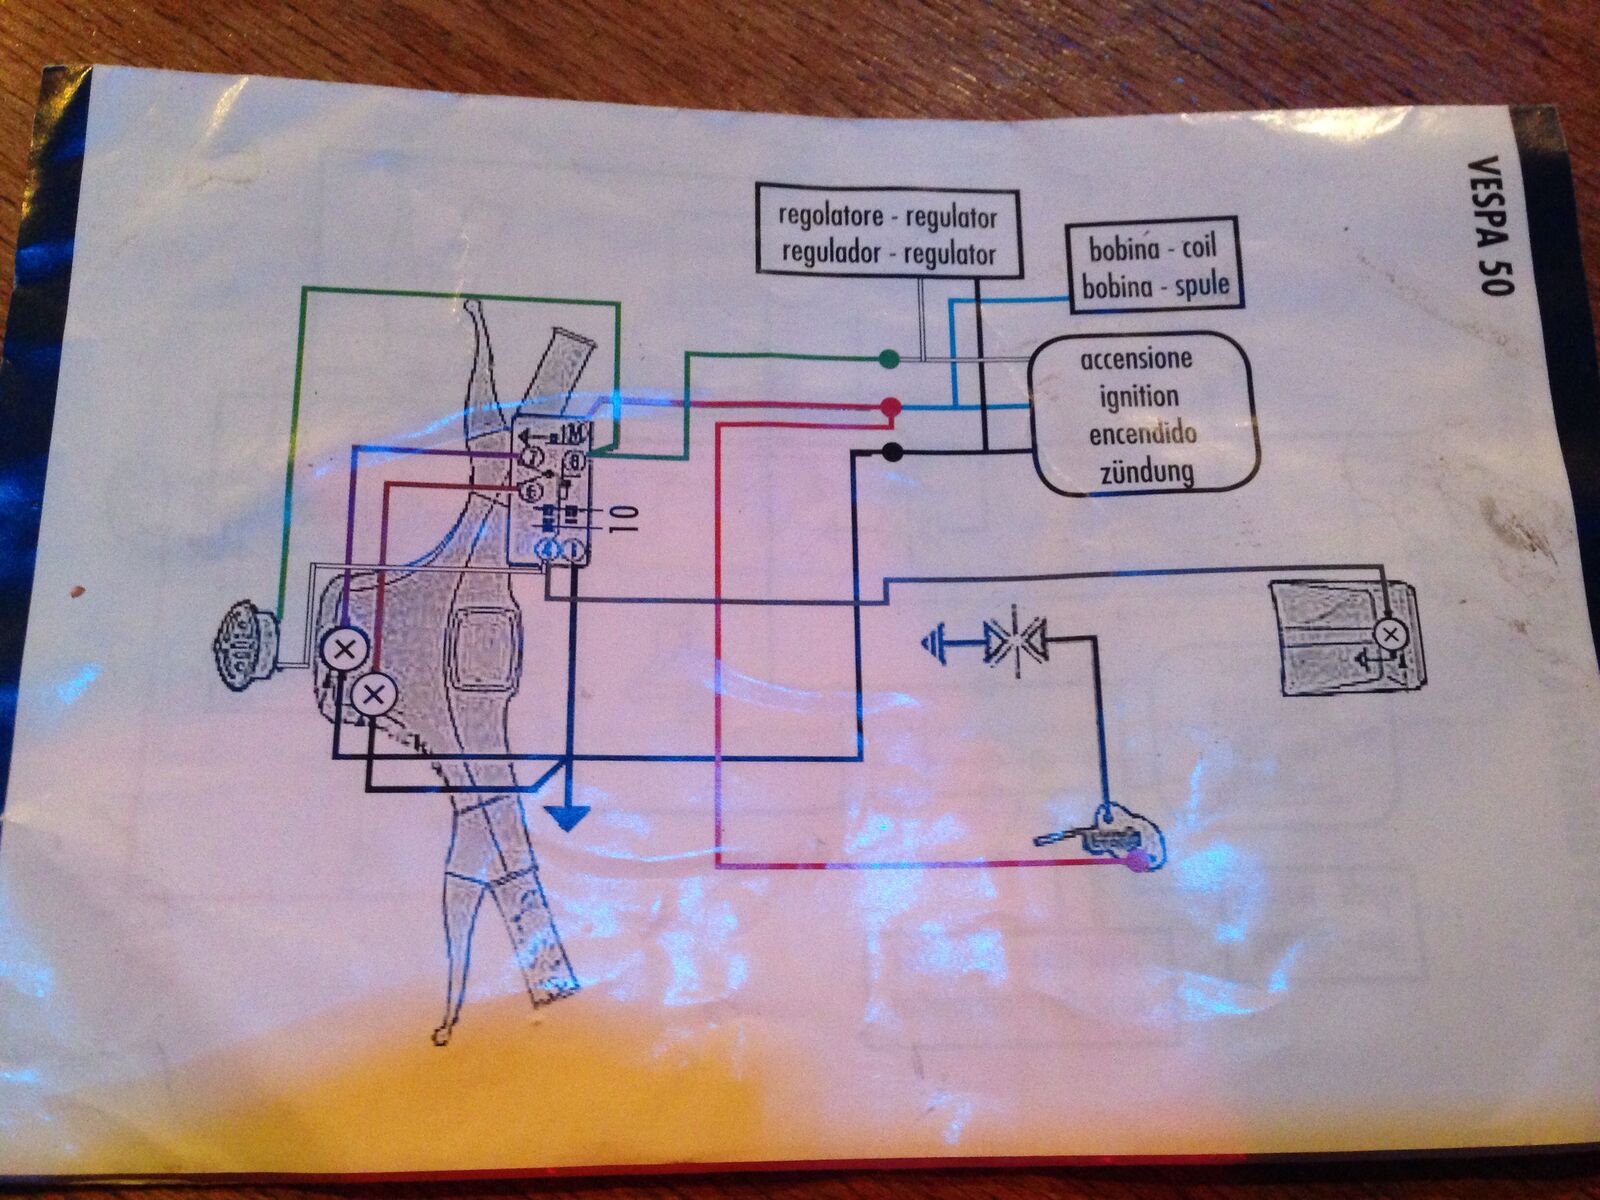 VESPA 50
regolatore - regulator
regulador - regulator
bobina - coil
bobina - spule
accensione
ignition
encendido
zündung
1M
7
8
6
10
4
1